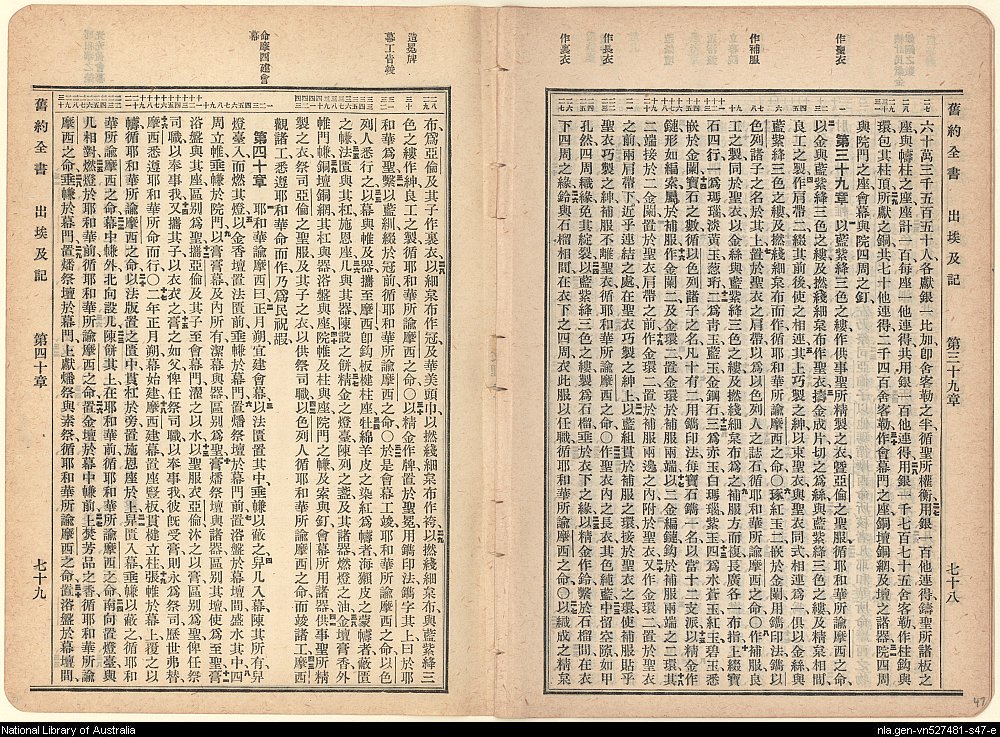 作聖衣
作補服
作長衣
作裏衣
舊約全書 出埃及記 第三十九章 七十八
六十萬三千五百五十人各獻銀一比加卽舍客勒之半循聖所權衡用銀一百他連得鑄聖所諸板之
座與幬柱之座座計一百每座一他連得共用銀一百他連得用銀一千七百七十五舍客勒作柱鈎與
環包其柱頂所獻之銅共七十他連得二千四百舍客勒作會幕門之座銅壇銅網及壇之諸器院四周
與院門之座會幕與院四周之釘
第三十九章 以藍紫絳三色之縷作供事聖所精製之衣暨亞倫之聖服循耶和華所諭摩西之命
以金與藍紫絳三色之縷及撚綫細枲布作聖衣擣金成片切之爲絲與藍紫絳三色之縷及精枲相間
良工之製作肩帶二綴其前後使之相連其上巧製之紳以束聖衣與聖衣同式相連爲一俱以金絲與
藍紫絳三色之縷及撚綫細枲布而作循耶和華所諭摩西之命〇琢紅玉二嵌於金闌用鐫印法鐫以
色列諸子之名於其上置於聖衣之肩帶以爲以色列人之誌石循耶和華所諭摩西之命〇作補服良
工之製同於聖衣以金絲與藍紫絳三色之縷及撚綫細枲布爲之補服方而復長廣各一布指上綴寶
石四行一爲瑪瑙淡黃玉葱珩二爲靑玉藍玉金鋼石三爲赤玉白瑪瑙紫玉四爲水蒼玉紅玉碧玉悉
嵌於金闌寶石之數循以色列諸子之名凡十有二用鐫印法每寶石鐫一名以當十二支派以精金作
鏈形如編索屬於補服作金闌二金環二置於補服兩端以二金編鏈鈎於補服兩端之二環其
二端接於二金闌置於聖衣肩帶之前作金環二置於補服兩邊之內附於聖衣又作金環二置於聖衣
之前兩肩帶下近乎連結之處在聖衣巧製之紳上以藍組貫於補服之環接於聖衣之環使補服貼乎
聖衣巧製之紳補服不離聖衣循耶和華所諭摩西之命〇作聖衣內之長衣其色純藍中留空隙如甲
孔然四周織緣免其綻裂以藍紫絳三色之縷製爲石榴垂於衣下之緣以精金作鈴繫於石榴間在
下四周之緣鈴與石榴相間在衣下之四周衣此服以任職循耶和華所諭摩西之命〇以織成之精枲
造冕牌
幕工皆竣
命摩西建會幕
布爲亞倫及其子作裏衣以細枲布作冠及華美頭巾以撚綫細枲布作袴以撚綫細枲布與藍紫絳三
色之縷作紳良工之製循耶和華所諭摩西之命〇以精金作牌置於聖冕用鐫印法鐫字其上曰於耶
和華爲聖繫以藍紃綴於冠前循耶和華所諭摩西之命〇於是會幕工竣耶和華所諭摩西之命以色
列人悉行之以幕與帷及器攜至摩西卽鈎板楗柱座牡綿羊皮之染紅爲幬者海獺皮之蒙幬者蔽匱
之㡘法匱與其杠施恩座几與其器陳設之餅精金之燈臺陳列之盞及其諸器燃燈之油金壇膏香外
帷門㡘銅壇銅網其杠與器浴盤與座院帷及柱與座院門之㡘及索與釘會幕所用諸器供事聖所精
製之衣祭司亞倫之聖服及其子之衣以供祭司職以色列人循耶和華所諭摩西之命而竣諸工摩西
觀諸工悉遵耶和華命而作乃爲民祝嘏
第四十章 耶和華諭摩西曰正月朔宜建會幕以法匱置其中垂㡘以蔽之舁几入幕陳其所有舁
燈臺入而燃其燈以金香壇置法匱前垂㡘於幕門置燔祭壇於幕門前置浴盤於幕壇間盛水其中四
周立帷垂㡘於院門以膏膏幕及內所有潔幕與器區別爲聖膏燔祭壇與諸器區別其壇使爲至聖膏
浴盤與其座區別爲聖攜亞倫及其子至會幕門濯之以水以聖服衣亞倫沐之以膏區別爲聖俾任祭
司職以奉事我又攜其子以衣衣之膏之如父俾任祭司職以奉事我彼旣受膏則永爲祭司歷世弗替
摩西悉遵耶和華所命而行〇二年正月朔幕始建摩西建幕置座豎板貫楗立柱張帷於幕上覆之以
幬循耶和華所諭摩西之命以法版置之匱中貫杠於旁置施恩座於上舁匱入幕垂㡘以蔽之循耶和
華所諭摩西之命幕中㡘外北向設几陳餅其上在耶和華前循耶和華所諭摩西之命南向置燈臺與
几相對燃燈於耶和華前循耶和華所諭摩西之命置金壇於幕中㡘前上焚芳品之香循耶和華所諭
摩西之命垂㡘於幕門置燔祭壇於幕門上獻燔祭與素祭循耶和華所諭摩西之命置浴盤於幕壇間
舊約全書 出埃及記 第四十章 七十九
47
National Library of Australia
nla.gen-vn527481-s47-e